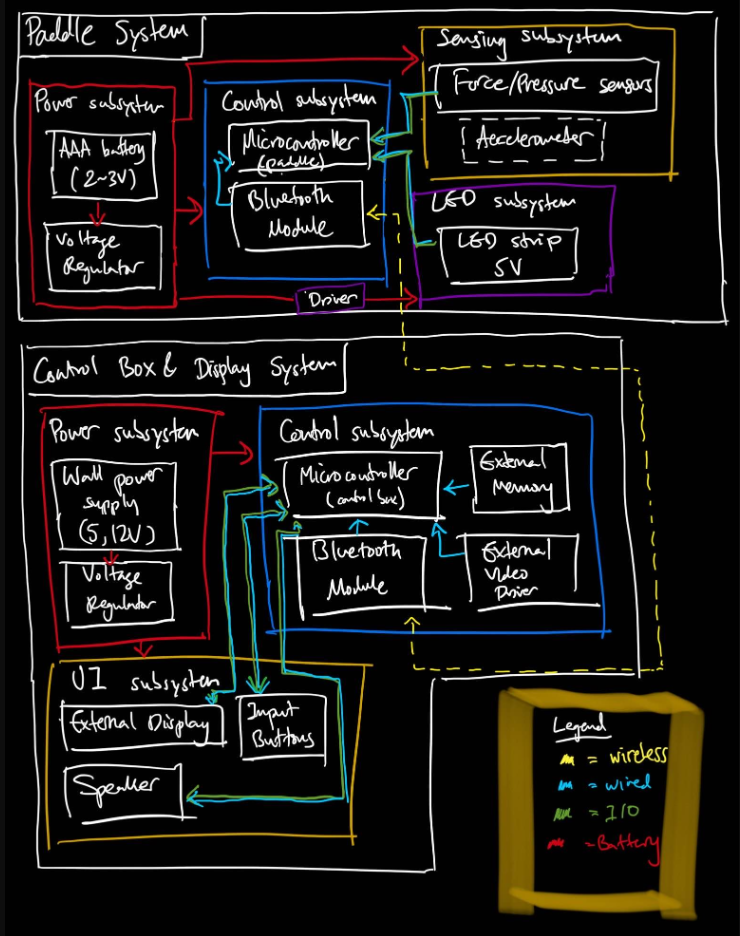 Paddle System
Power subsystem
AAA battery
(2~3V)
Voltage
Regulator
Control subsystem
Microcontroller
(paddle)
Bluetooth
Module
Sensing subsystem
Force/Pressure sensors
Accelerometer
LED subsystem
LED strip
5V
Driver
Control Box & Display System
Power subsystem
Wall power
supply
(5,12V)
Voltage
Regulator
Control subsystem
Microcontroller
(control box)
Bluetooth
Module
External
Memory
External
Video
Driver
UI subsystem
External Display
Input
Buttons
Speaker
Legend
= wireless
= wired
= I/O
= Battery